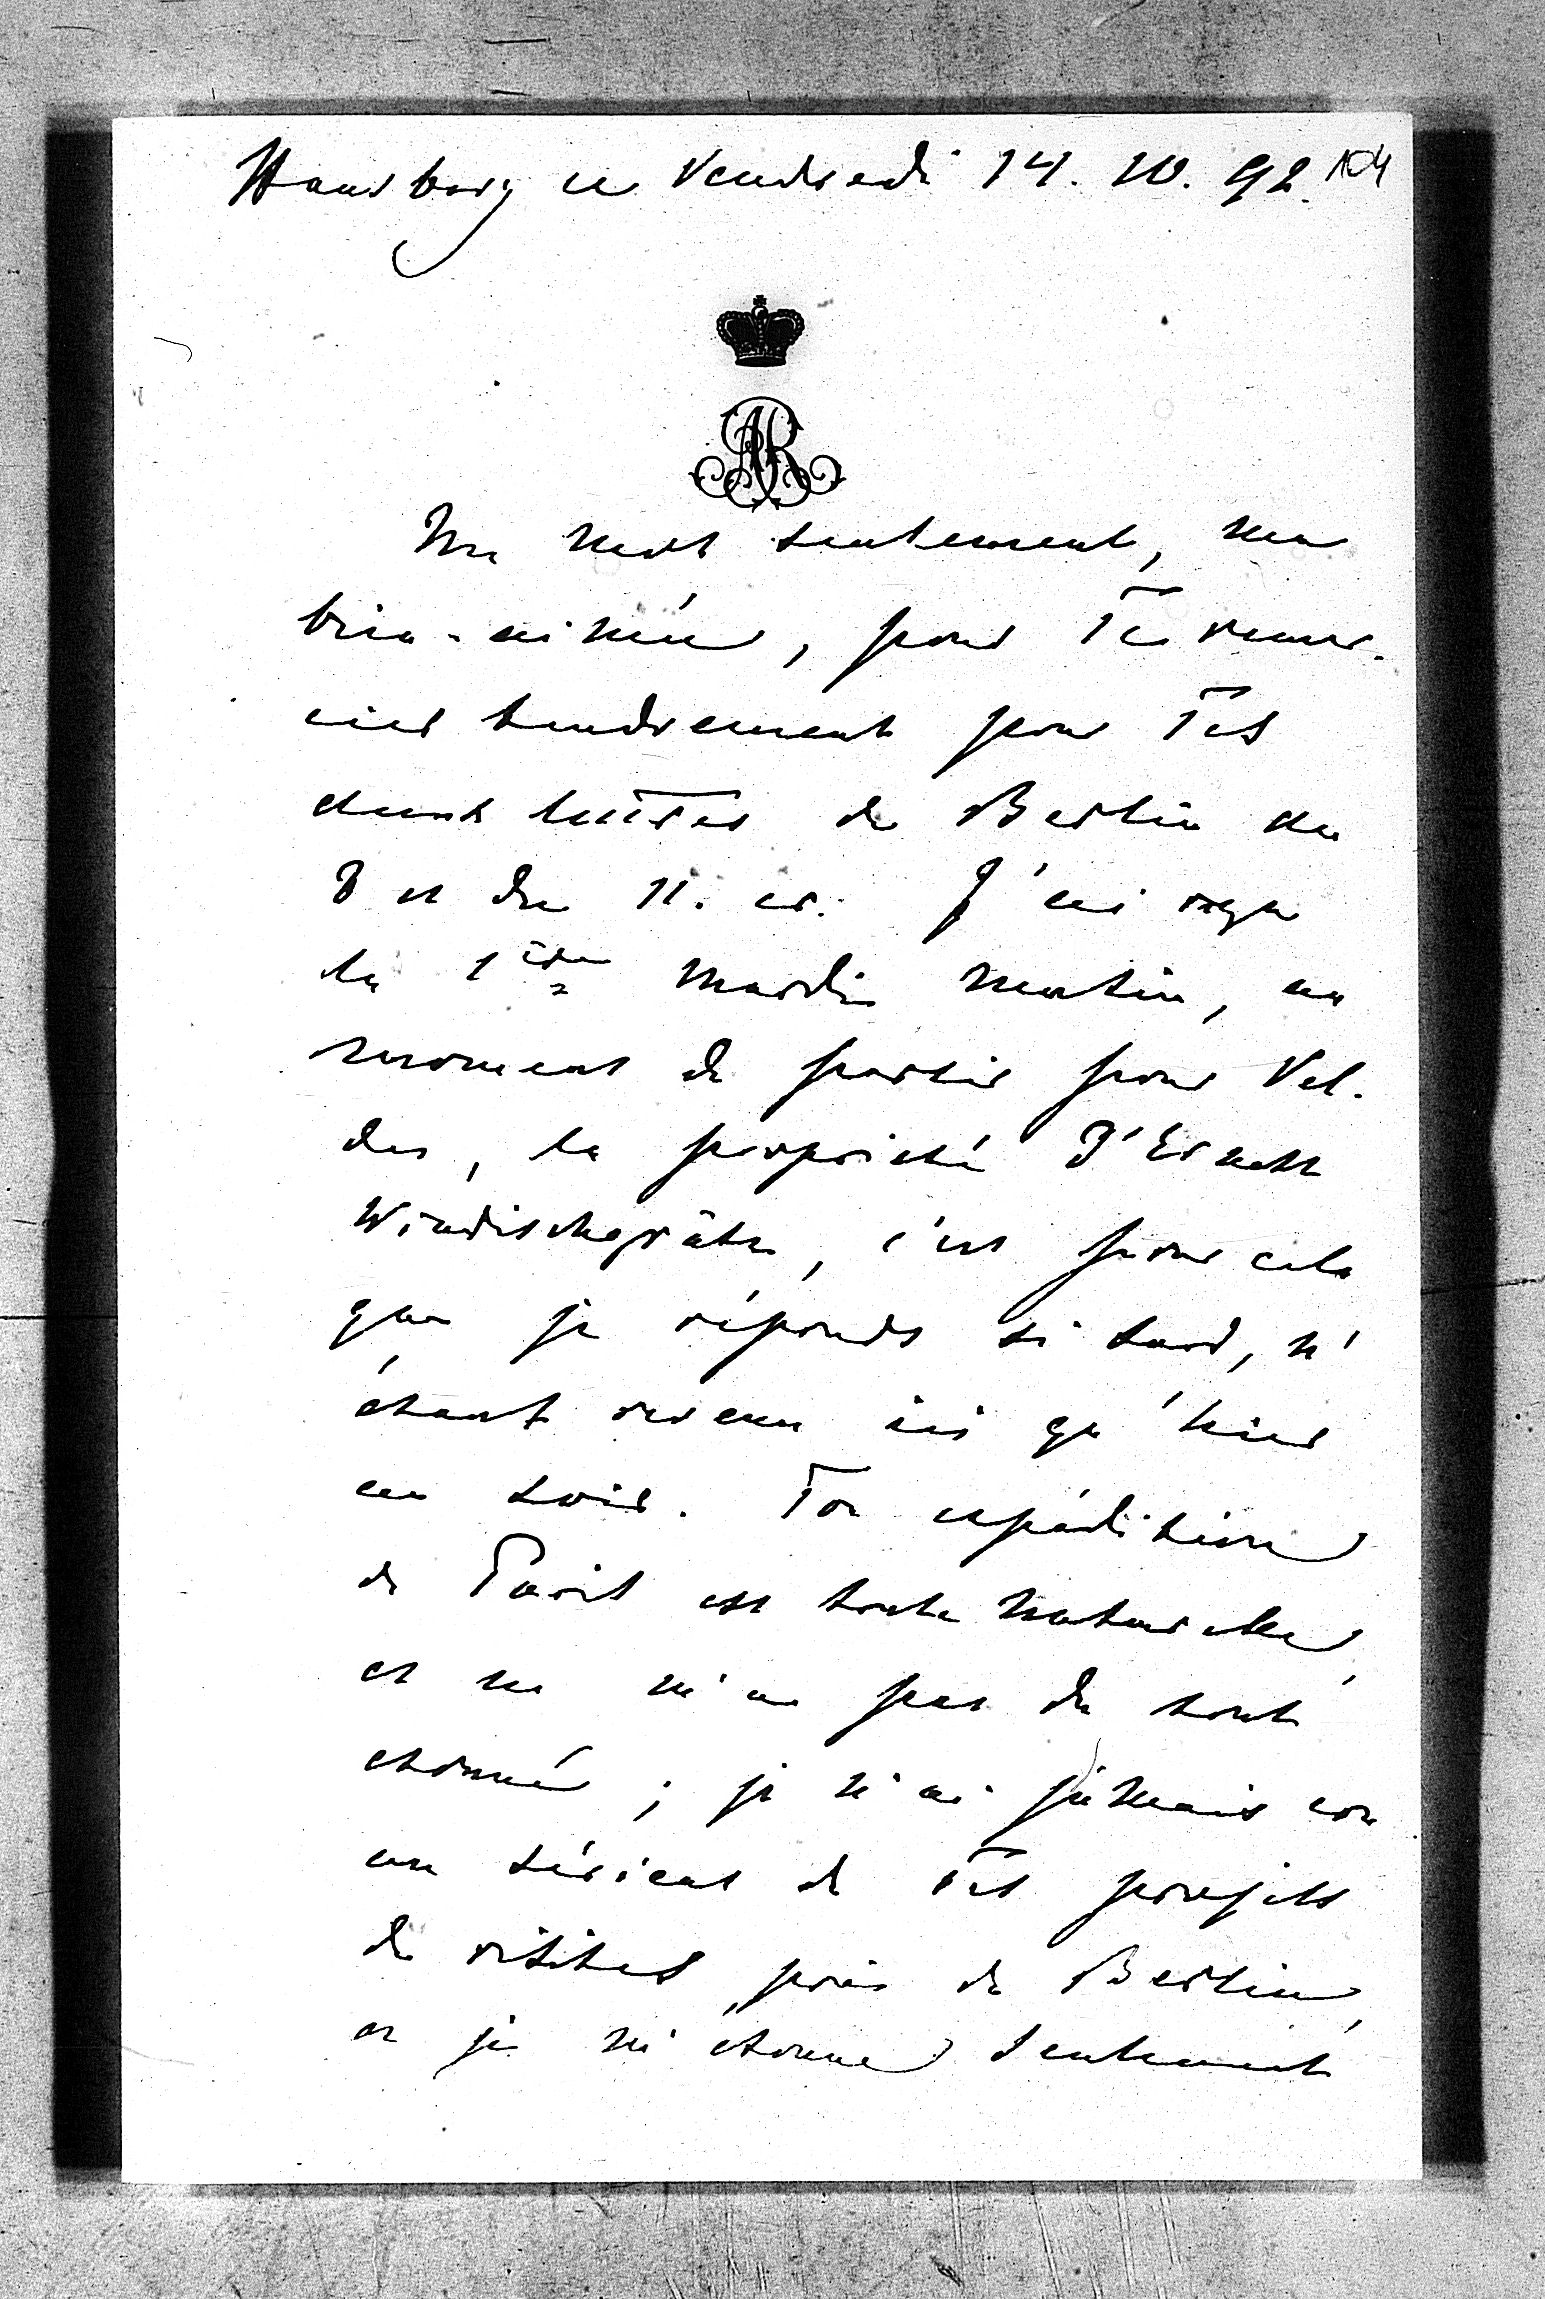 Hausberg ce Vendredi 14. 10. 92. 104
AR
Un mot seulement, ma
bien-aimée, pour Te remer-
cier tendrement pour Tes
deux lettres de Berlin du
8 et du 11. cr. J'ai reçu
la 1ière mardi matin, au
moment de partir pour Vel-
des, la propriété d'Ernest
Windischgrätz, c'est pour cela
que je réponds si tard, n'
étant revenu ici qu'hier
au soir. Ton expédition
de Paris est toute naturelle,
et ne m'a pas du tout
étonné; je n'ai jamais cru
au sérieux de Tes projets
de visites près de Berlin,
et je m'étonne seulement